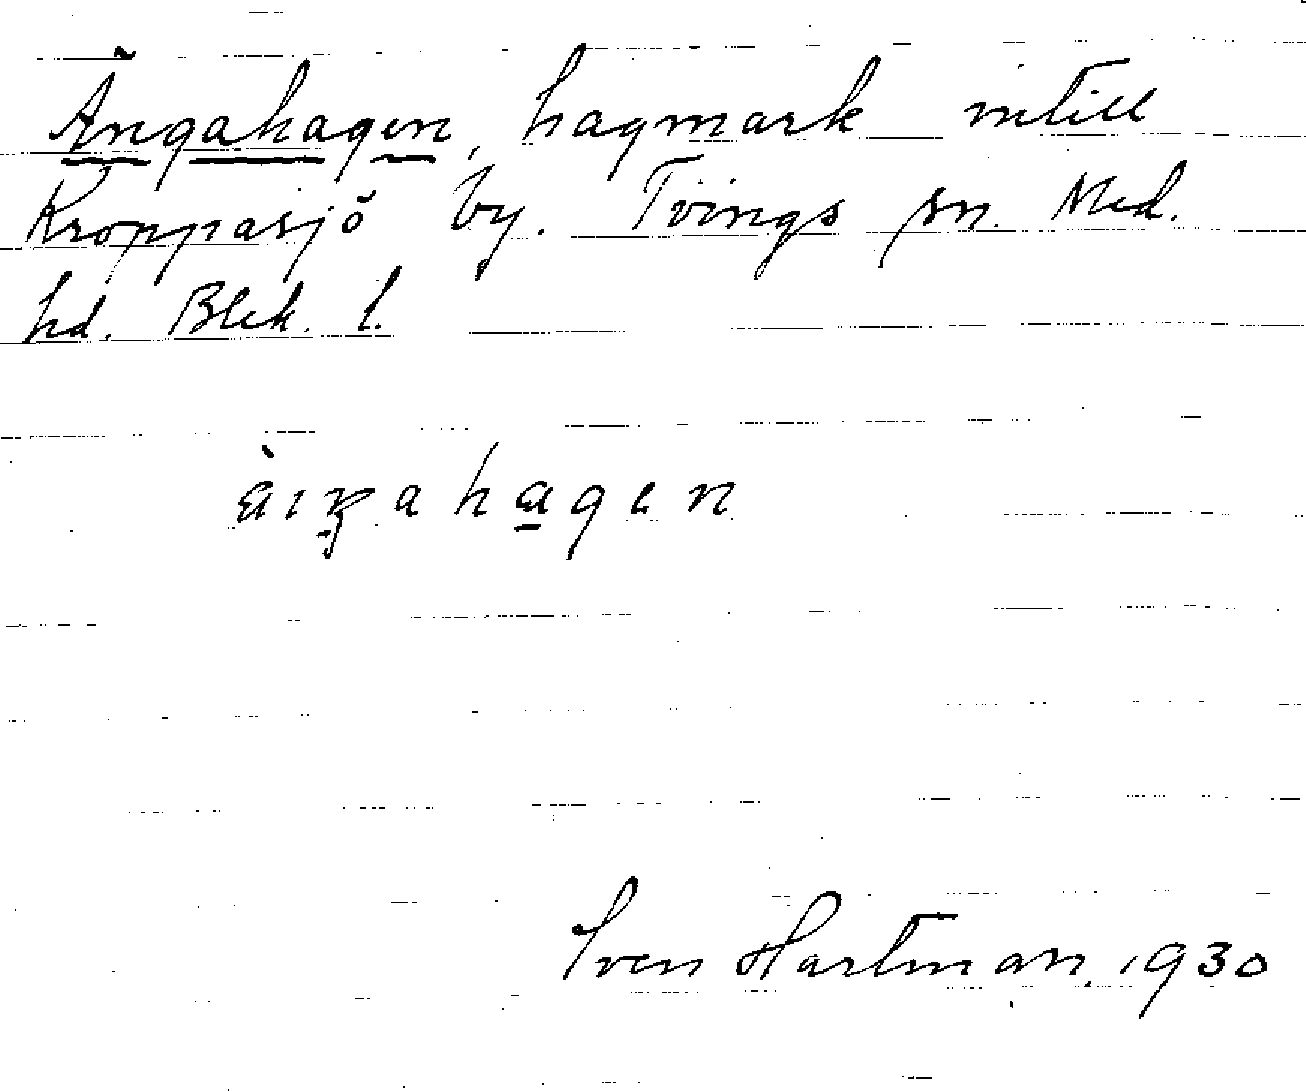 Ängahagen, hagmark intill
Kroppasjö by. Tvings sn. Med.
hd. Blek. l.
Sven Hartman, 1930